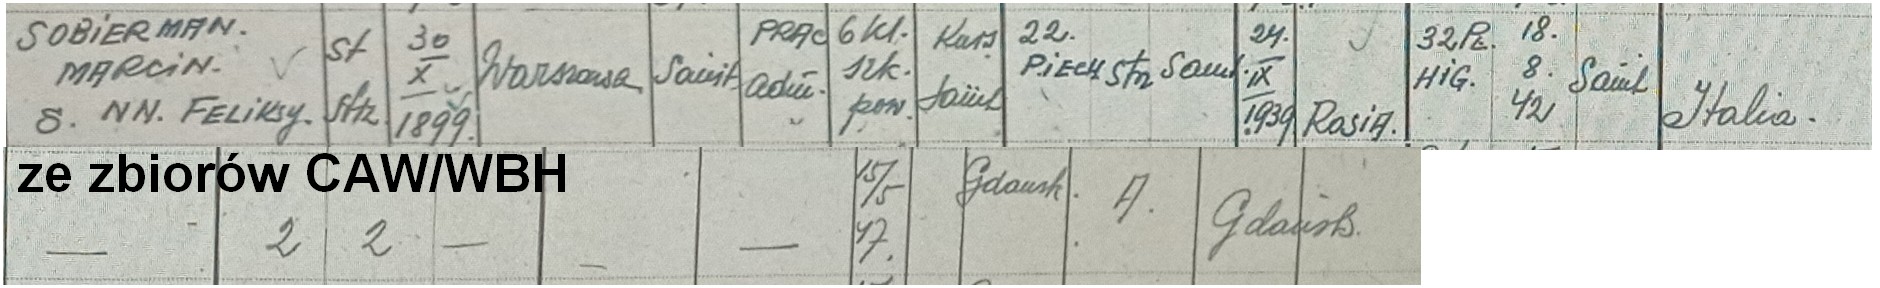 SOBIERMAN.
MARCIN.
S. NN. FELIKSY.
St
Str.
30
X
1899.
Warszawa
Sanit.
PRAC
adm.
6 kl.
szk.
pow.
Kurs
Sanit
22.
PIECH
Strz
Sanit.
24.
IX
1939
ROSIA.
32 PL.
HIG.
18.
8.
42
Sanit
Italia.
ze zbiorów CAW/WBH
—
2
2
—
—
—
15/5
47.
Gdańsk.
A.
Gdańsk.